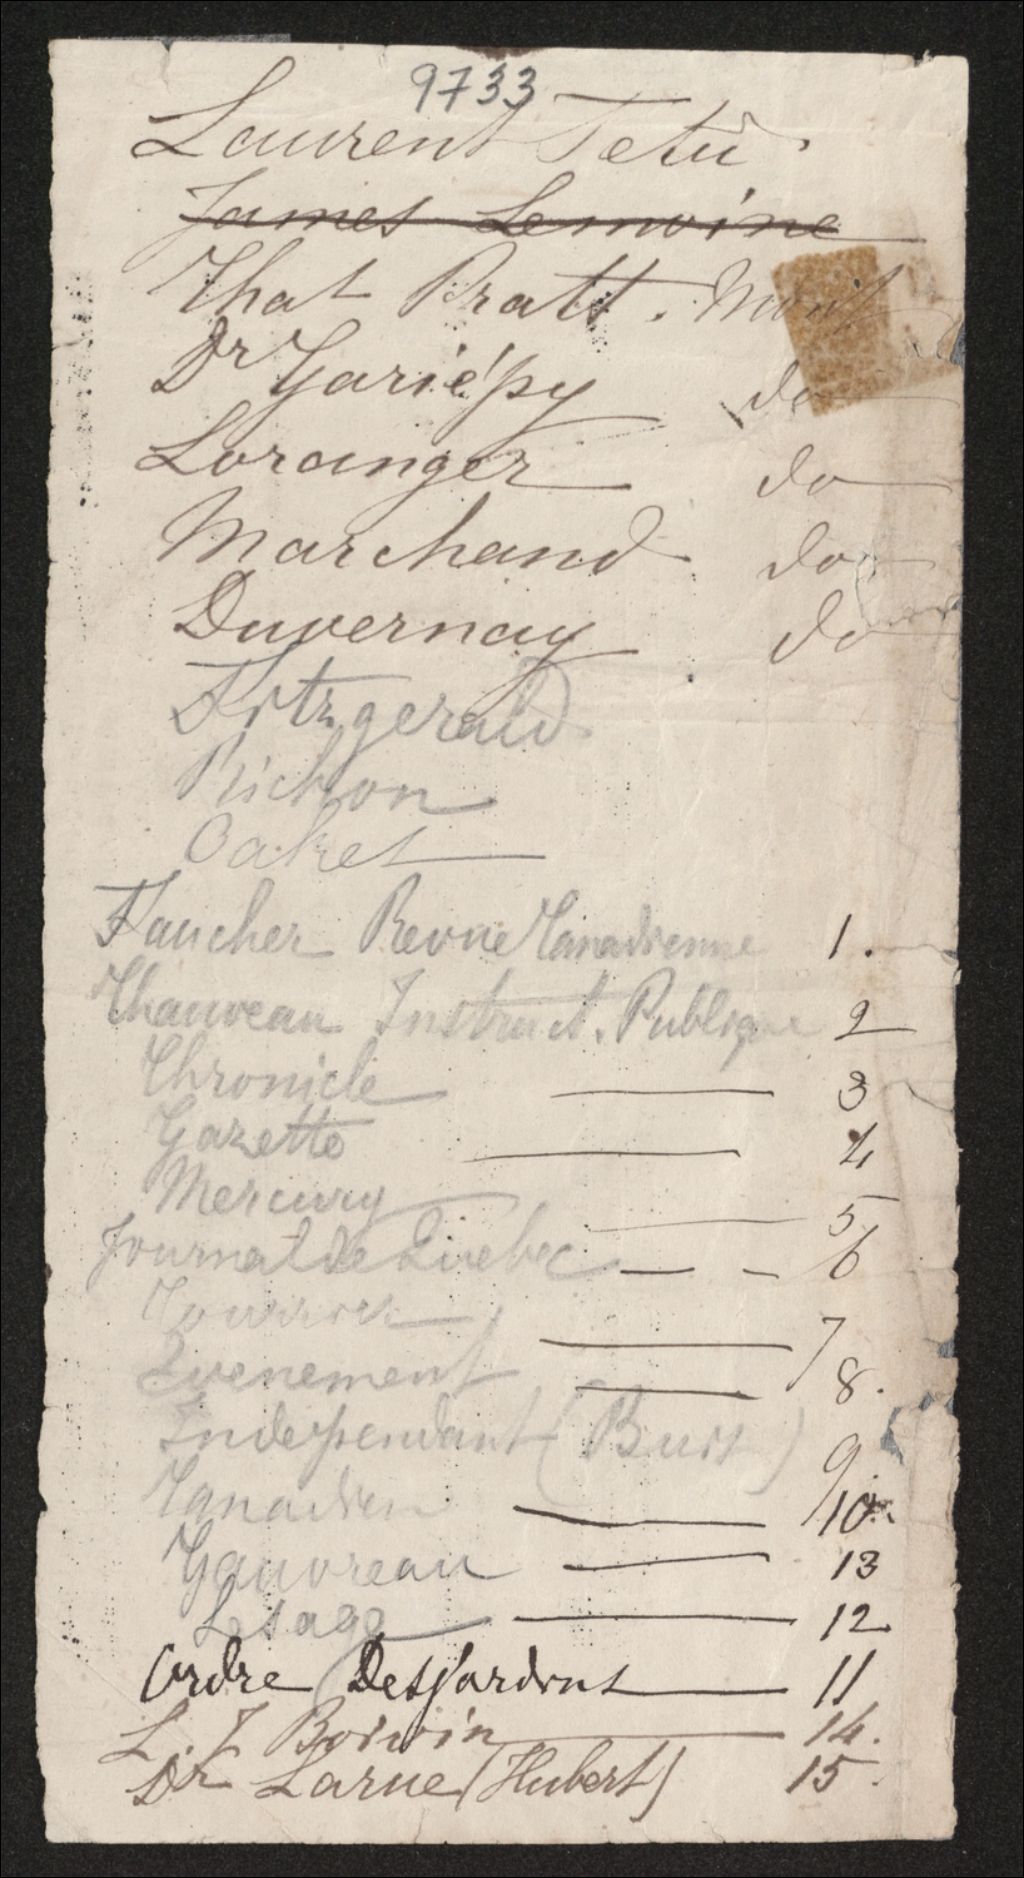 9733
Laurent Tetu
James Lemoine
Chas Pratt. Mont
Dr Gariépy do
Loranger do
Marchand do
Duvernay do
Fitzgerald
Oakes
Faucher Revue Canadienne 1.
Chauveau Instruct. Publique 2
Chronicle — 3
Gazette — 4
Mercury — 5
Journal de Quebec — — 6
Courrier — 7
Evenement — 8.
Independant (Buis) 9
Canadien — 10.
Gauvreau — 13
Lesage — 12
Ordre Desjardins — 11
L. J. Boivin — 14.
Dr Larue (Hubert) 15.